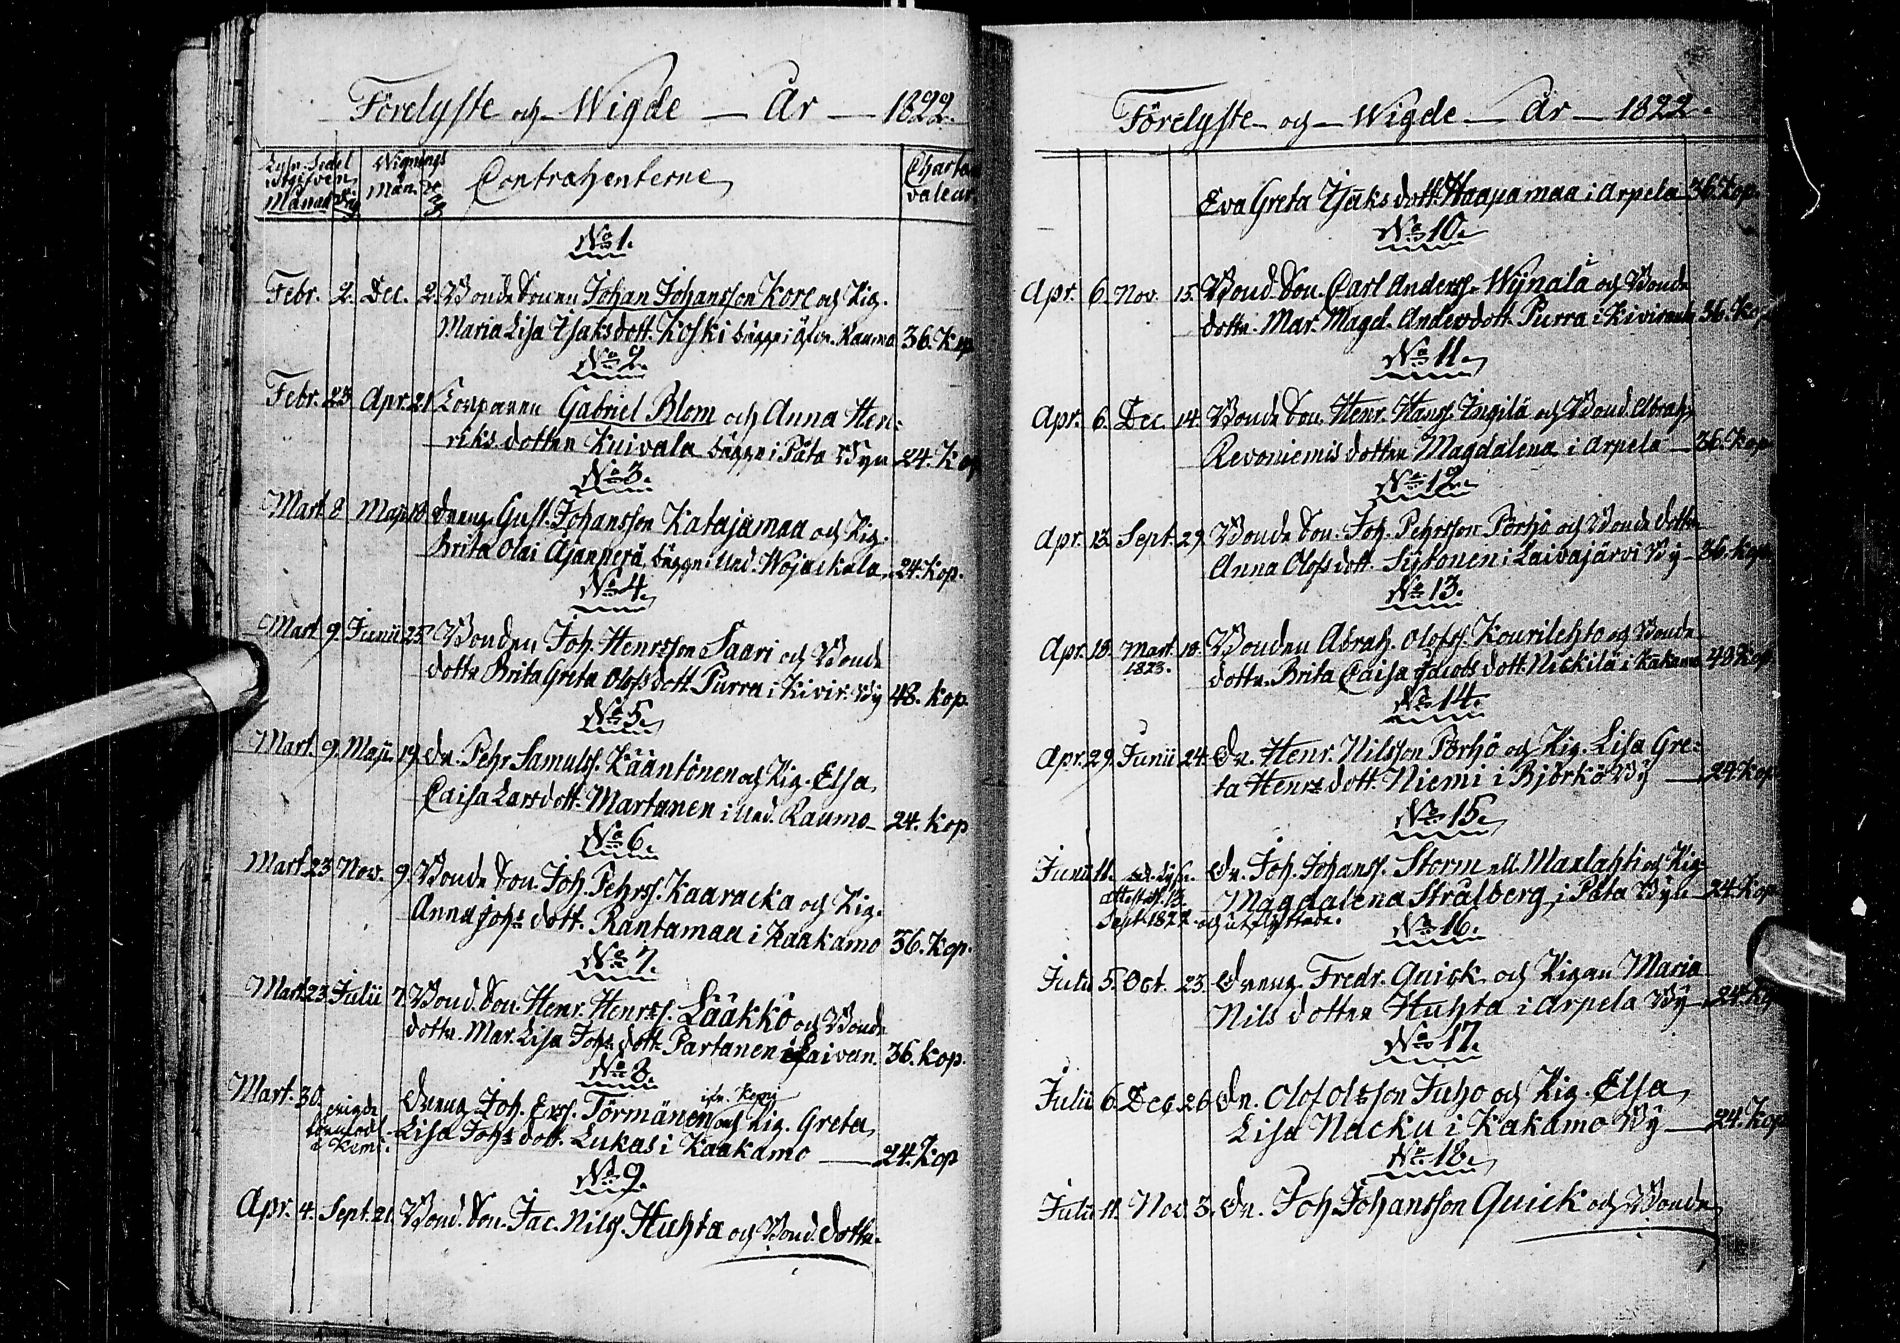 Förelyste och Wigde — År — 1822.
Lysn. Sedel utgifven Månad Dag
Wignings Mån. Dag
Contrahenterne
Charta valeur
No 1.
Febr. 2. Dec. 2. Bonde Sonen Johan Johansson Kore och Pig.
Maria Lisa Isaksdott. Koski bägge i Öfver Raumo 36. Kop
No 2.
Febr. 23. Apr. 21. Gabriel Blom och Anna Hen-
riksdotter Kuivala bägge i Päta Byn 24. Kop
No 3.
Mart. 8 Maji 18 Dreng Gust. Johansson Katajamaa och Pig.
Brita Olai Ajanperä, bägge i Ned. Wojackala 24. Kop.
No 4.
Mart. 9. Junii 25 Bonden Joh. Henrsson Saari och Bonde
dottn Brita Greta Olofsdott. Purra i Kivir. By 48. Kop.
No 5.
Mart. 9. Maji. 19. Dr. Pehr Samulss. Kääntönen och Pig. Elsa
Caisa Larsdott. Martanen i Ned. Raumo 24. Kop
No 6.
Mart. 23 Nov. 9. Bonde Son. Joh. Pehrss. Kaaracka och Pig.
Anna Johs dott. Rantamaa i Kaakamo 36. Kop.
No 7.
Mart. 23. Julii 7. Bond. Son. Henr. Henrss. Lääkkö och Bonde
dottn. Mar. Lisa Johs dott. Partanen i Laivan. 36. Kop.
No 8.
Mart. 30. Dreng Joh. Erss. Törmänen ifr. Kemi och Pig. Greta
wigde i Kemi. Lisa Johs dott. Lukas i Kaakamo — 24. Kop
No 9.
Apr. 4. Sept. 21. Bond. Son. Jac. Nilss. Huhta och Bond. dottn.
Förelyste och Wigde — År — 1822.
Eva Greta Isaks dott. Haapamaa i Arpela 36. Kop.
No 10.
Apr. 6. Nov. 15. Bond. Son. Carl Anderss. Wijnala och Bonde
dottn. Mar. Magd. Andersdott. Purra i Kiviranda 36. Kop
No 11.
Apr. 6. Dec. 14. Bonde Son. Henr. Hanss. Yngilä och Bond. Abrah.
Revoniemis dotter Magdalena i Arpela — 36. Kop
No 12.
Apr. 13. Sept. 29. Bonde Son. Joh. Pehrsson Pörhö och Bonde dottn
Anna Olofsdott. Sijkonen i Laivajärvi By — 36. Kop.
No 13.
Apr. 18. Mart. 1823. 18. Bonden Abrah. Olofss. Kourilehto och Bonde
dottn. Brita Caisa Jacobs dott. Neckilä i Kakamo 48 Kop
No 14.
Apr. 29. Junii 24. Dr. Henr. Nilsson Pörhö och Pig. Lisa Gre-
ta Henrs dott. Niemi i Björkö By — 24. Kop
No 15.
Junii 16. Dr. Joh. Johanss. Storm ell. Maxlahti och Pig.
attest d. 13 Magdalena Strålberg i Päta Byn 24. Kop
Sept. 1822 och utflyttade.
No 16.
Julii 5. Oct. 23. Dreng Fredr. Quick och Pigan Maria
Nils dotter Huhta i Arpela By — 24. Kop
No 17.
Julii 6. Dec. 26. Dr. Olof Olsson Juho och Pig. Elsa
Lisa Nacku i Kakamo By — 24. Kop
No 18.
Julii 11. Nov. 3. Dr. Joh. Johansson Quick och Bonde